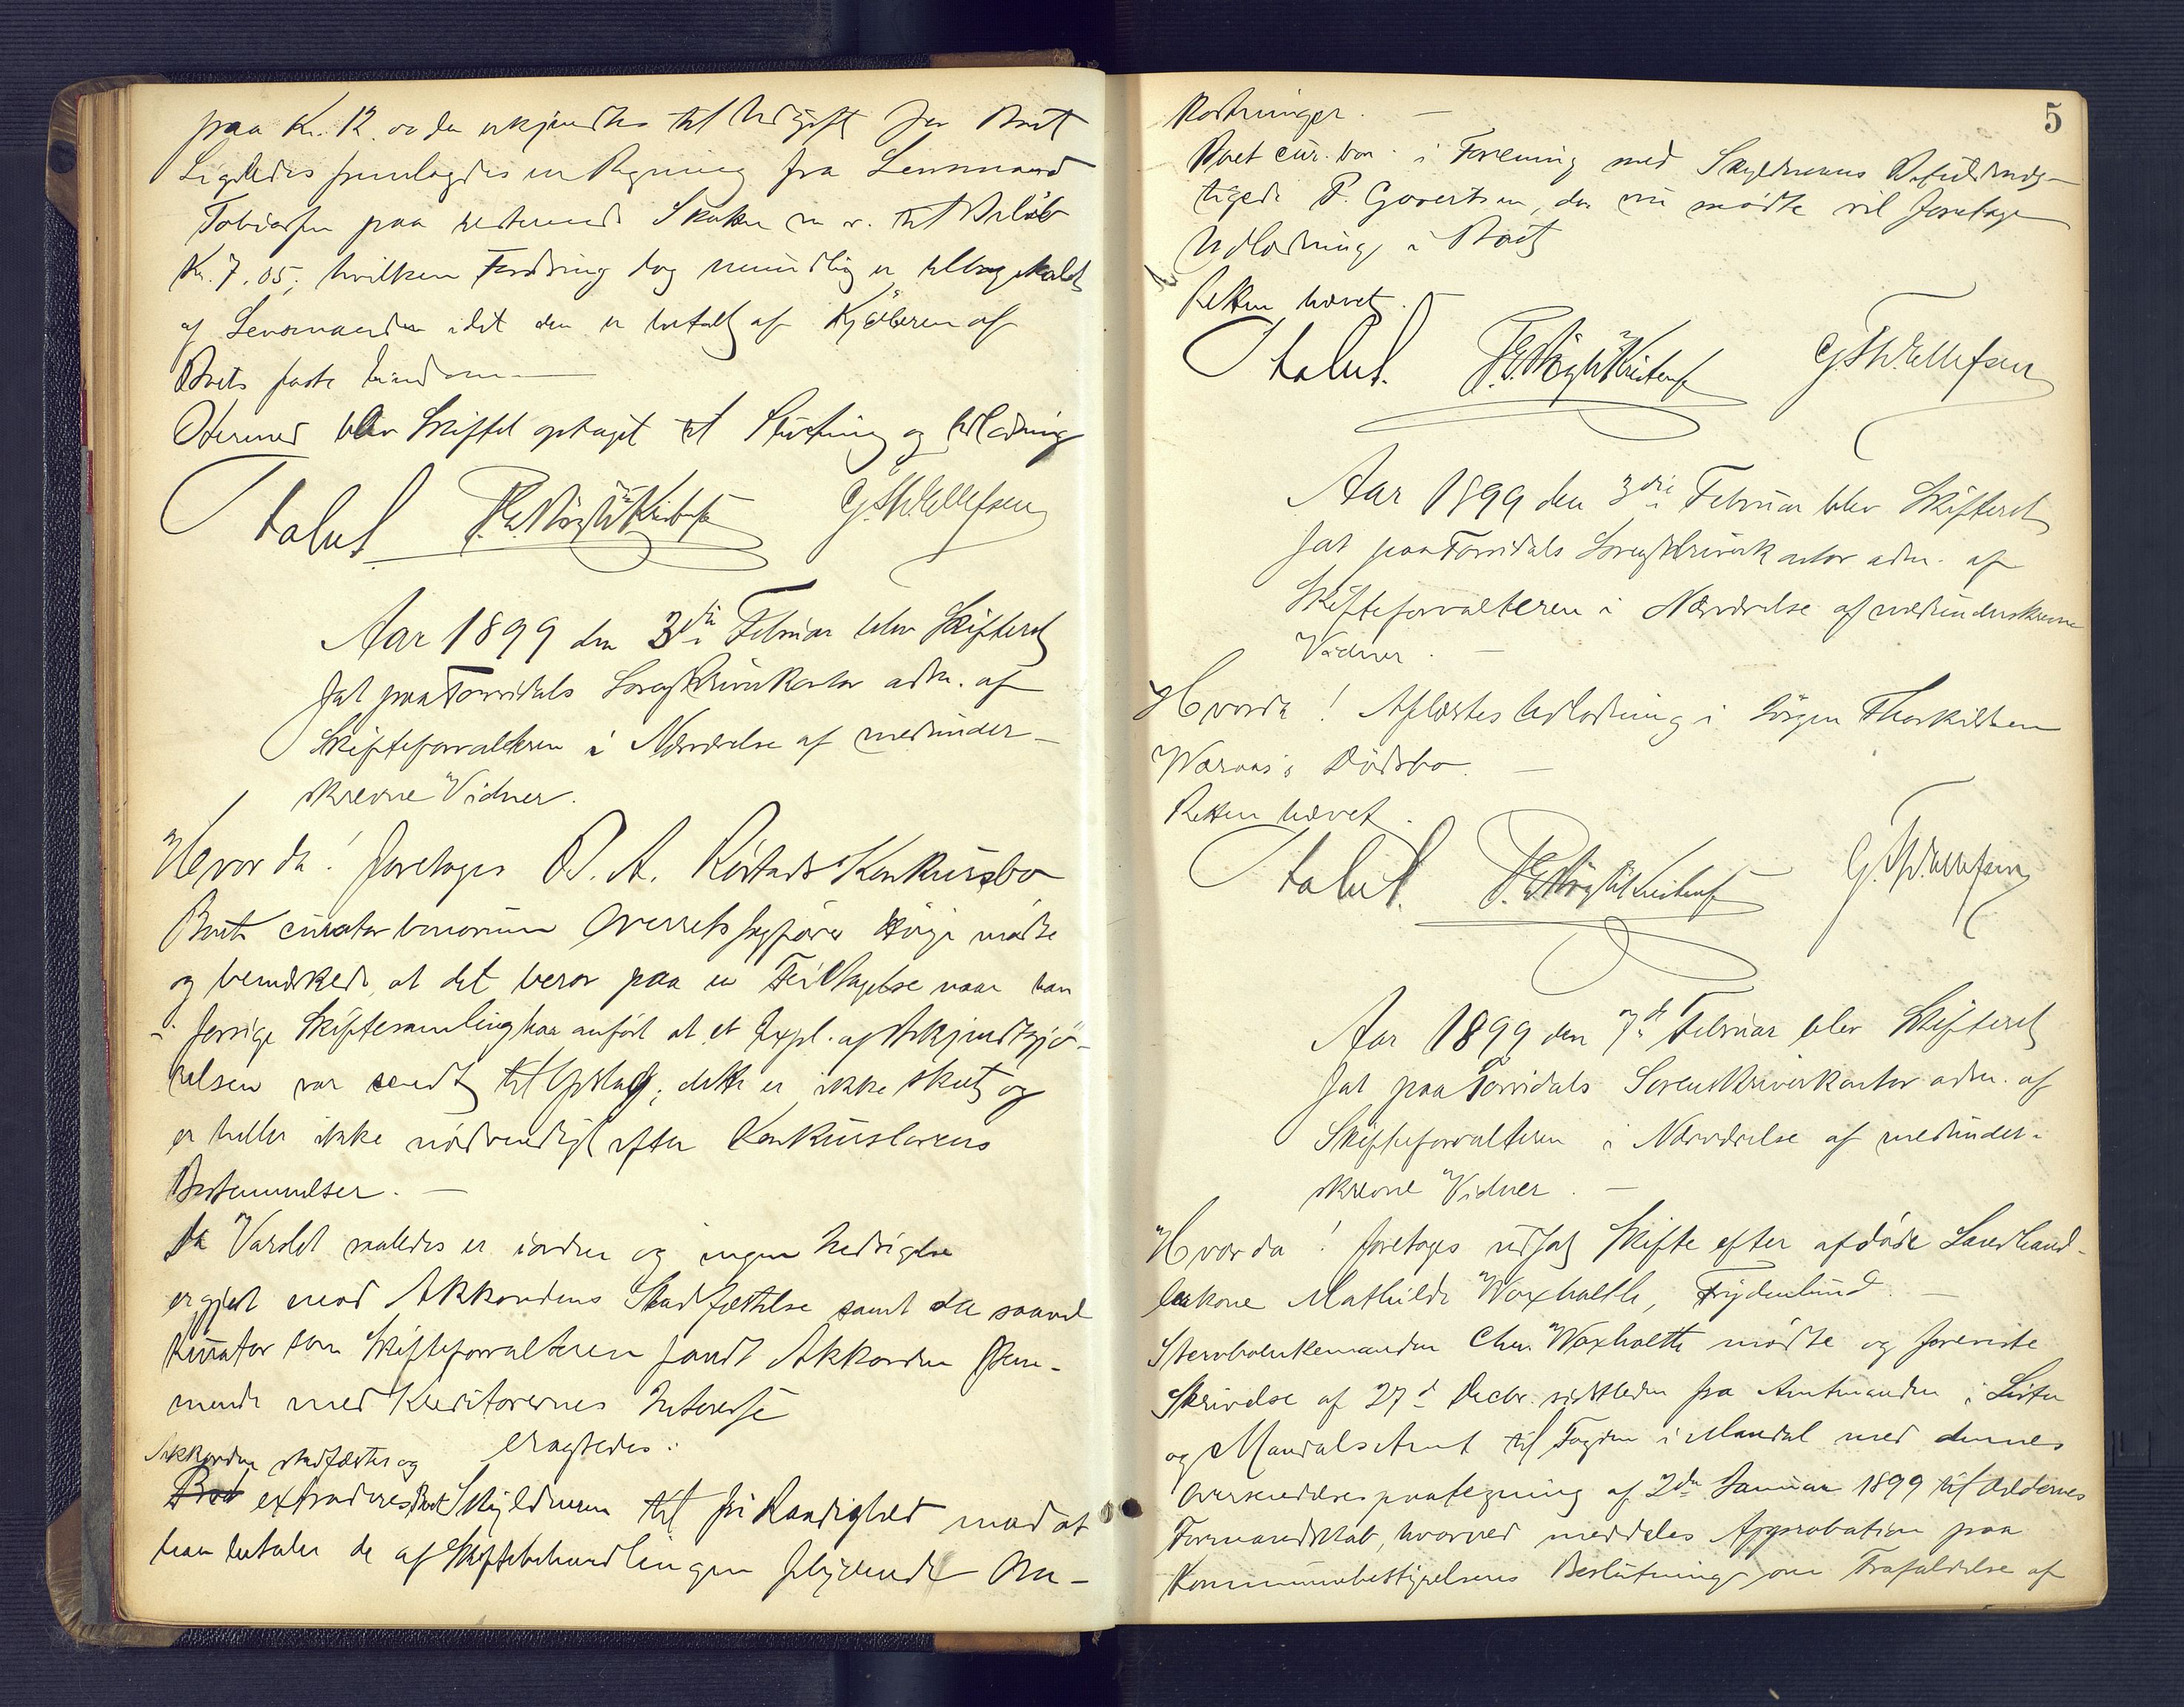 paa Kr. 12. og da erkjendtes til Udgift for Boet
Ligeledes fremlagdes en Regning fra Lensmand
Tobiassen paa resterende Skatter m. v. til Beløb
Kr. 7.05; hvilken Fordring dog mundtlig er tilbagekaldt
af Lensmanden idet den er betalt af Kjøberen af
Boets faste Eiendom
Hermed blev Skiftet optaget til Slutning og Udlodning
Stabel
G. Th. Ellefsen
Aar 1899 den 3die Februar blev Skifteret
sat paa Torridals Sorenskriverkontor adm. af
Skifteforvalteren i Nærværelse af medunder-
skrevne Vidner.
Hvorda! foretoges O. A. Röstads Konkursbo
Boets curator bonorum Overretssagfører Heyer mødte
og bemærkede, at det beror paa en Feiltagelse naar han
i forrige Skiftesamling har anført at et Expl. af Bekjendtgjö-
relsen var sendt til Opslag; dette er ikke skeet og
er heller ikke nödvendigt efter Konkurslovens
Bestemmelser.
Da Varslet saaledes er iorden og ingen Indsigelse
er gjort mod Akkordens Stadfæstelse samt da saavel
Kurator som Skifteforvalteren fandt Akkorden stem-
mende med Kreditorernes Interesse
eragtedes:
Akkorden stadfæstes og
Boet extraderes Boet Skyldneren til fri Raadighed mod at
han betaler de af Skiftebehandlingen flydende Om-
5
kostninger.
Boets cur. bon. i Forening med Skyldnerens Befuldmæg-
tigede P. Govertsen, der nu mødte vil foretage
Udlodning i Boet
Retten hævet.
Stabel.
G. Th. Ellefsen
Aar 1899 den 3die Februar blev Skifteret
sat paa Torridals Sorenskriverkontor adm. af
Skifteforvalteren i Nærværelse af medunderskrevne
Vidner.
Hvorda! Aflæstes Udlodning i Jörgen Thorkildsen
Waraas's Dödsbo.
Retten hævet.
Stabel.
G. Th. Ellefsen
Aar 1899 den 7de Februar blev Skifteret
sat paa Torridals Sorenskriverkontor adm. af
Skifteforvalteren i Nærværelse af medunder-
skrevne Vidner.
Hvorda! foretoges udsat Skifte efter afdöde Landhand-
lerkone Mathilde Woxholth, Frydenlund.
Sterboenkemanden Chr. Woxholth mödte og foreviste
Skrivelse af 27de Decbr. sidstleden fra Amtmanden i Lister
og Mandals Amt til Fogden i Mandal med dennes
Oversendelsespaategning af 2den Januar 1899 til Oddernes
Formandskab, hvorved meddeles Approbation paa
Kommunebestyrelsens Beslutning om Frafaldelse af